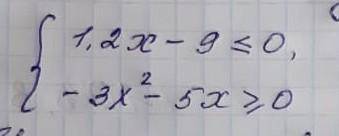 1,2x - 9 ≤ 0,
-3x² - 5x ≥ 0